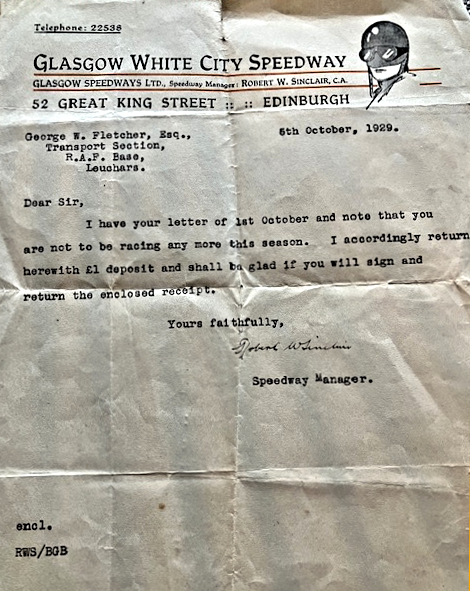 Telephone: 22538
GLASGOW WHITE CITY SPEEDWAY
GLASGOW SPEEDWAYS LTD., Speedway Manager: ROBERT W. SINCLAIR, C.A.
52 GREAT KING STREET :: :: EDINBURGH
George W. Fletcher, Esq.,
Transport Section,
R.A.F. Base,
Leuchars.
5th October, 1929.
Dear Sir,
I have your letter of 1st October and note that you
are not to be racing any more this season. I accordingly return
herewith £1 deposit and shall be glad if you will sign and
return the enclosed receipt.
Yours faithfully,
Robert W Sinclair
Speedway Manager.
encl.
RWS/BGB